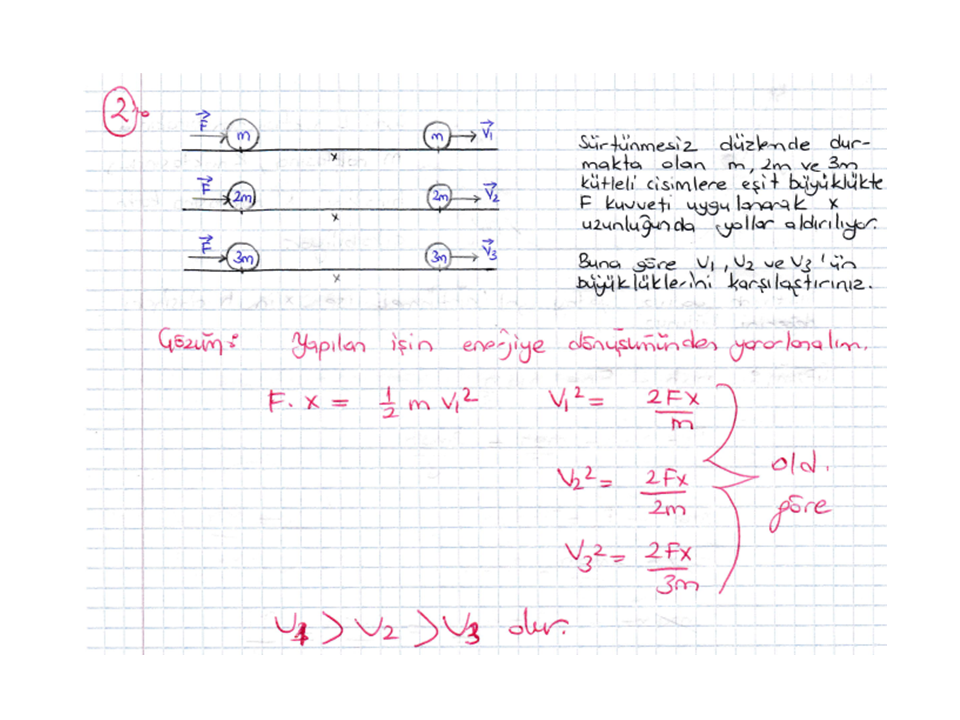 2.
F m m V₁
x
Sürtünmesiz düzlemde dur-
makta olan m, 2m ve 3m
kütleli cisimlere eşit büyüklükte
F kuvveti uygulanarak x
uzunluğunda yollar aldırılıyor.
F 2m 2m V₂
x
F 3m 3m V₃
x
Buna göre V₁, V₂ ve V₃'ün
büyüklüklerini karşılaştırınız.
Çözüm: Yapılan işin enerjiye dönüşümünden yararlanalım.
F. x = 1/2 m V₁² V₁² = 2Fx/m
V₂² = 2Fx/2m
old.
göre
V₃² = 2Fx/3m
V₁ > V₂ > V₃ dür.